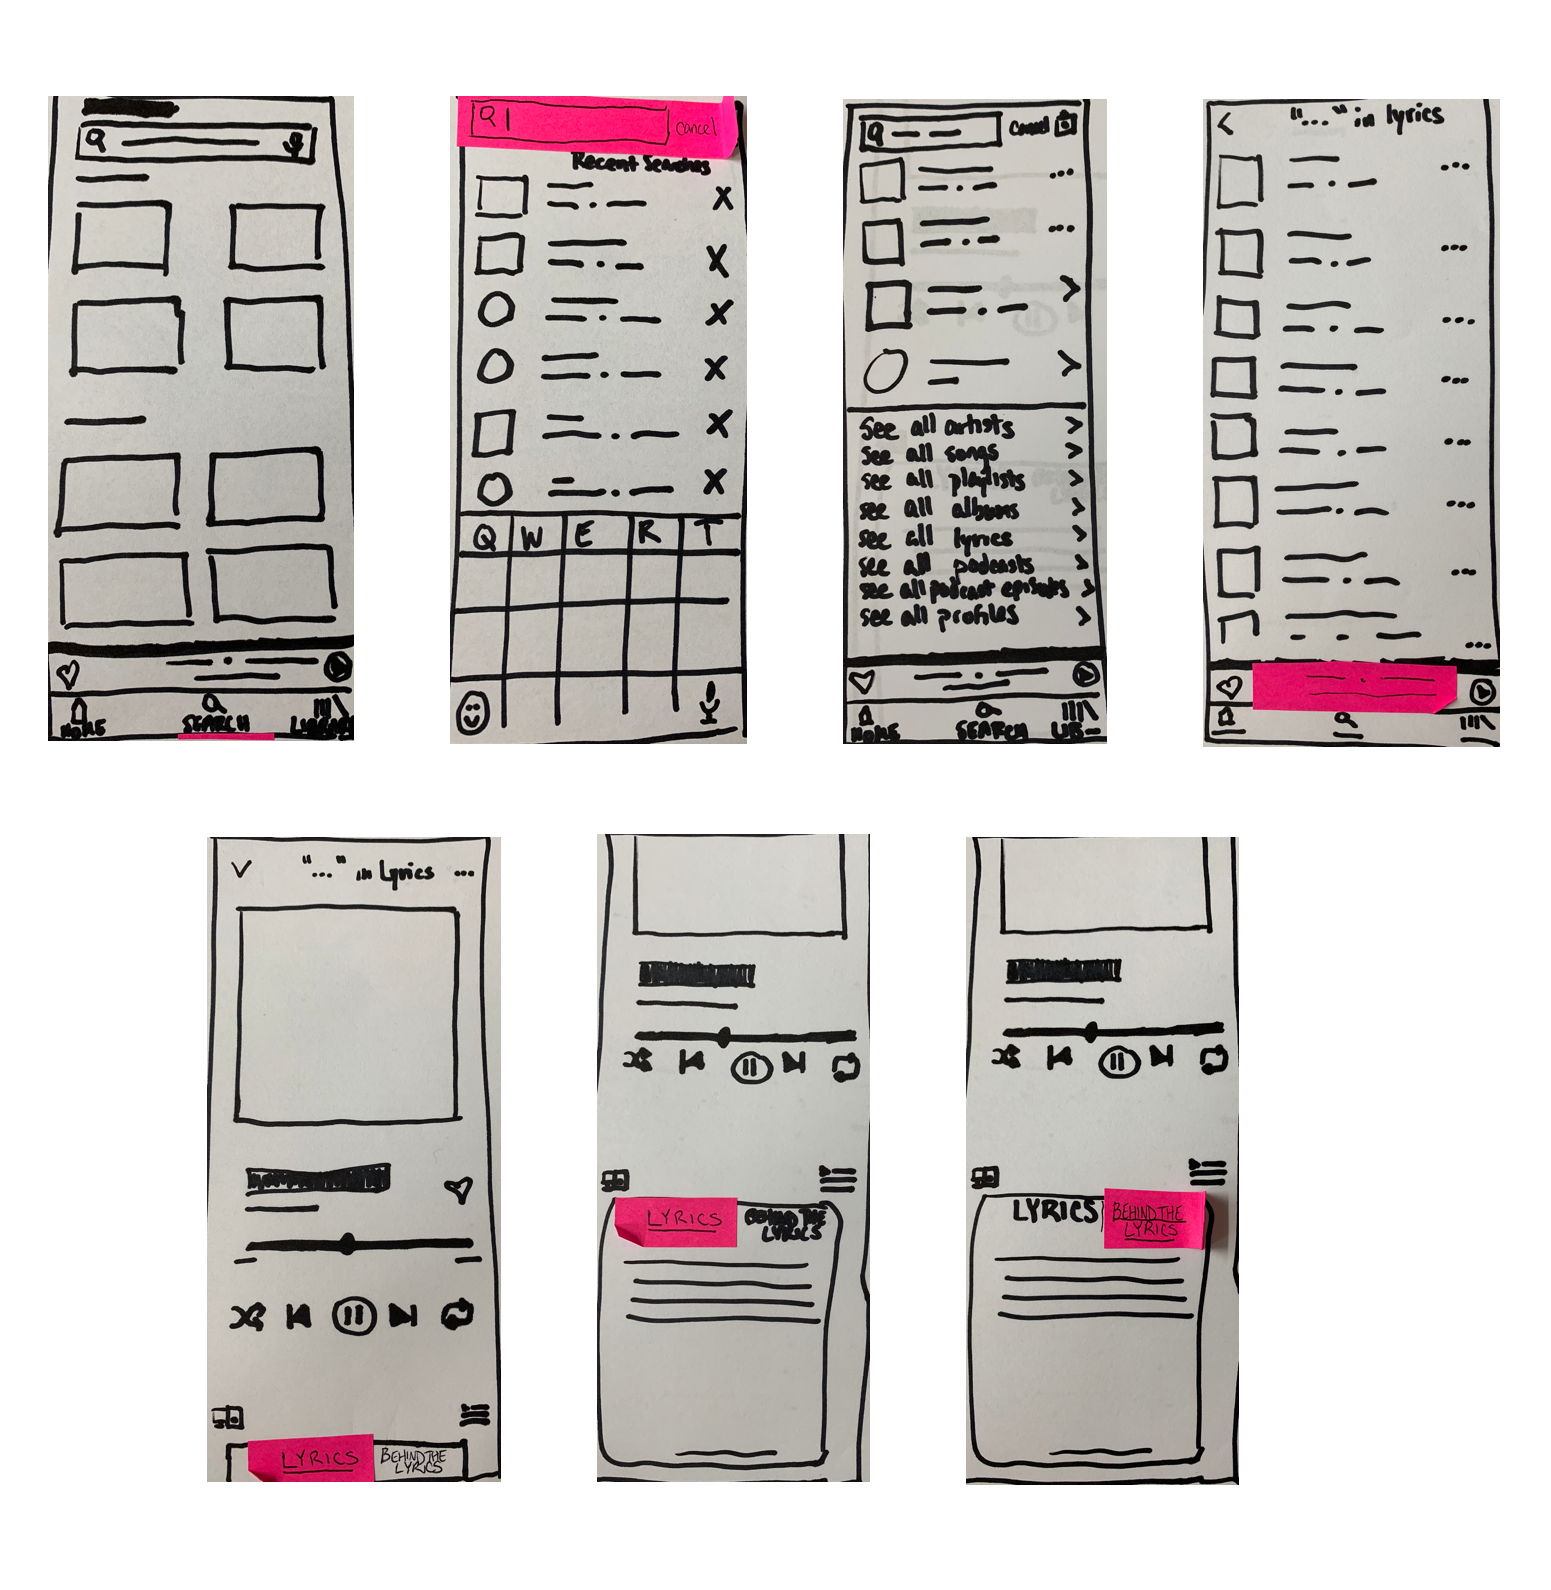 HOME
SEARCH
LIBRARY
cancel
Recent Searches
Q W E R T
Cancel
See all artists
see all songs
see all playlists
see all albums
see all lyrics
see all podcasts
see all podcast episodes
see all profiles
HOME
SEARCH
LIB
"..." in lyrics
"..." in Lyrics
LYRICS
BEHIND THE
LYRICS
LYRICS
BEHIND THE
LYRICS
LYRICS
BEHIND THE
LYRICS